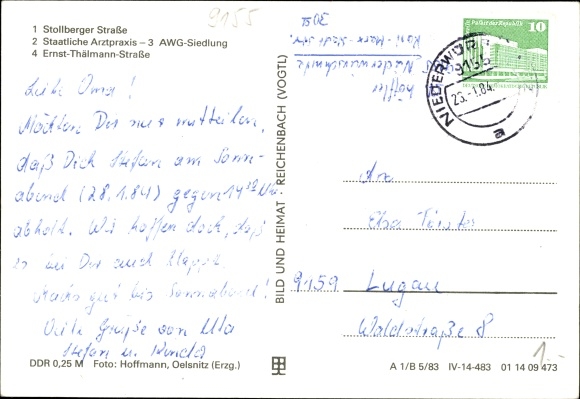 9155
1 Stollberger Straße
2 Staatliche Arztpraxis – 3 AWG-Siedlung
4 Ernst-Thälmann-Straße
Liebe Oma!
Möchten Dir nur mitteilen,
daß Dich Stefan am Sonn-
abend (28.1.84) gegen 14³⁰ Uhr
abholt. Wir hoffen doch, daß
es bei Dir auch klappt.
Mach's gut bis Sonnabend!
Viele Grüße von Uta
Stefan u. Ronald
DDR 0,25 M Foto: Hoffmann, Oelsnitz (Erzg.)
BILD UND HEIMAT REICHENBACH (VOGTL)
Höffler
9155 Niederwürschnitz
Karl-Marx-Siedlung
30
Palast der Republik
10
NIEDERWÜR
9155
25.-1.84
a
An
Elsa
9159 Lugau
Waldstraße 8
1.-
A 1/B 5/83 IV-14-483 01 14 09 473